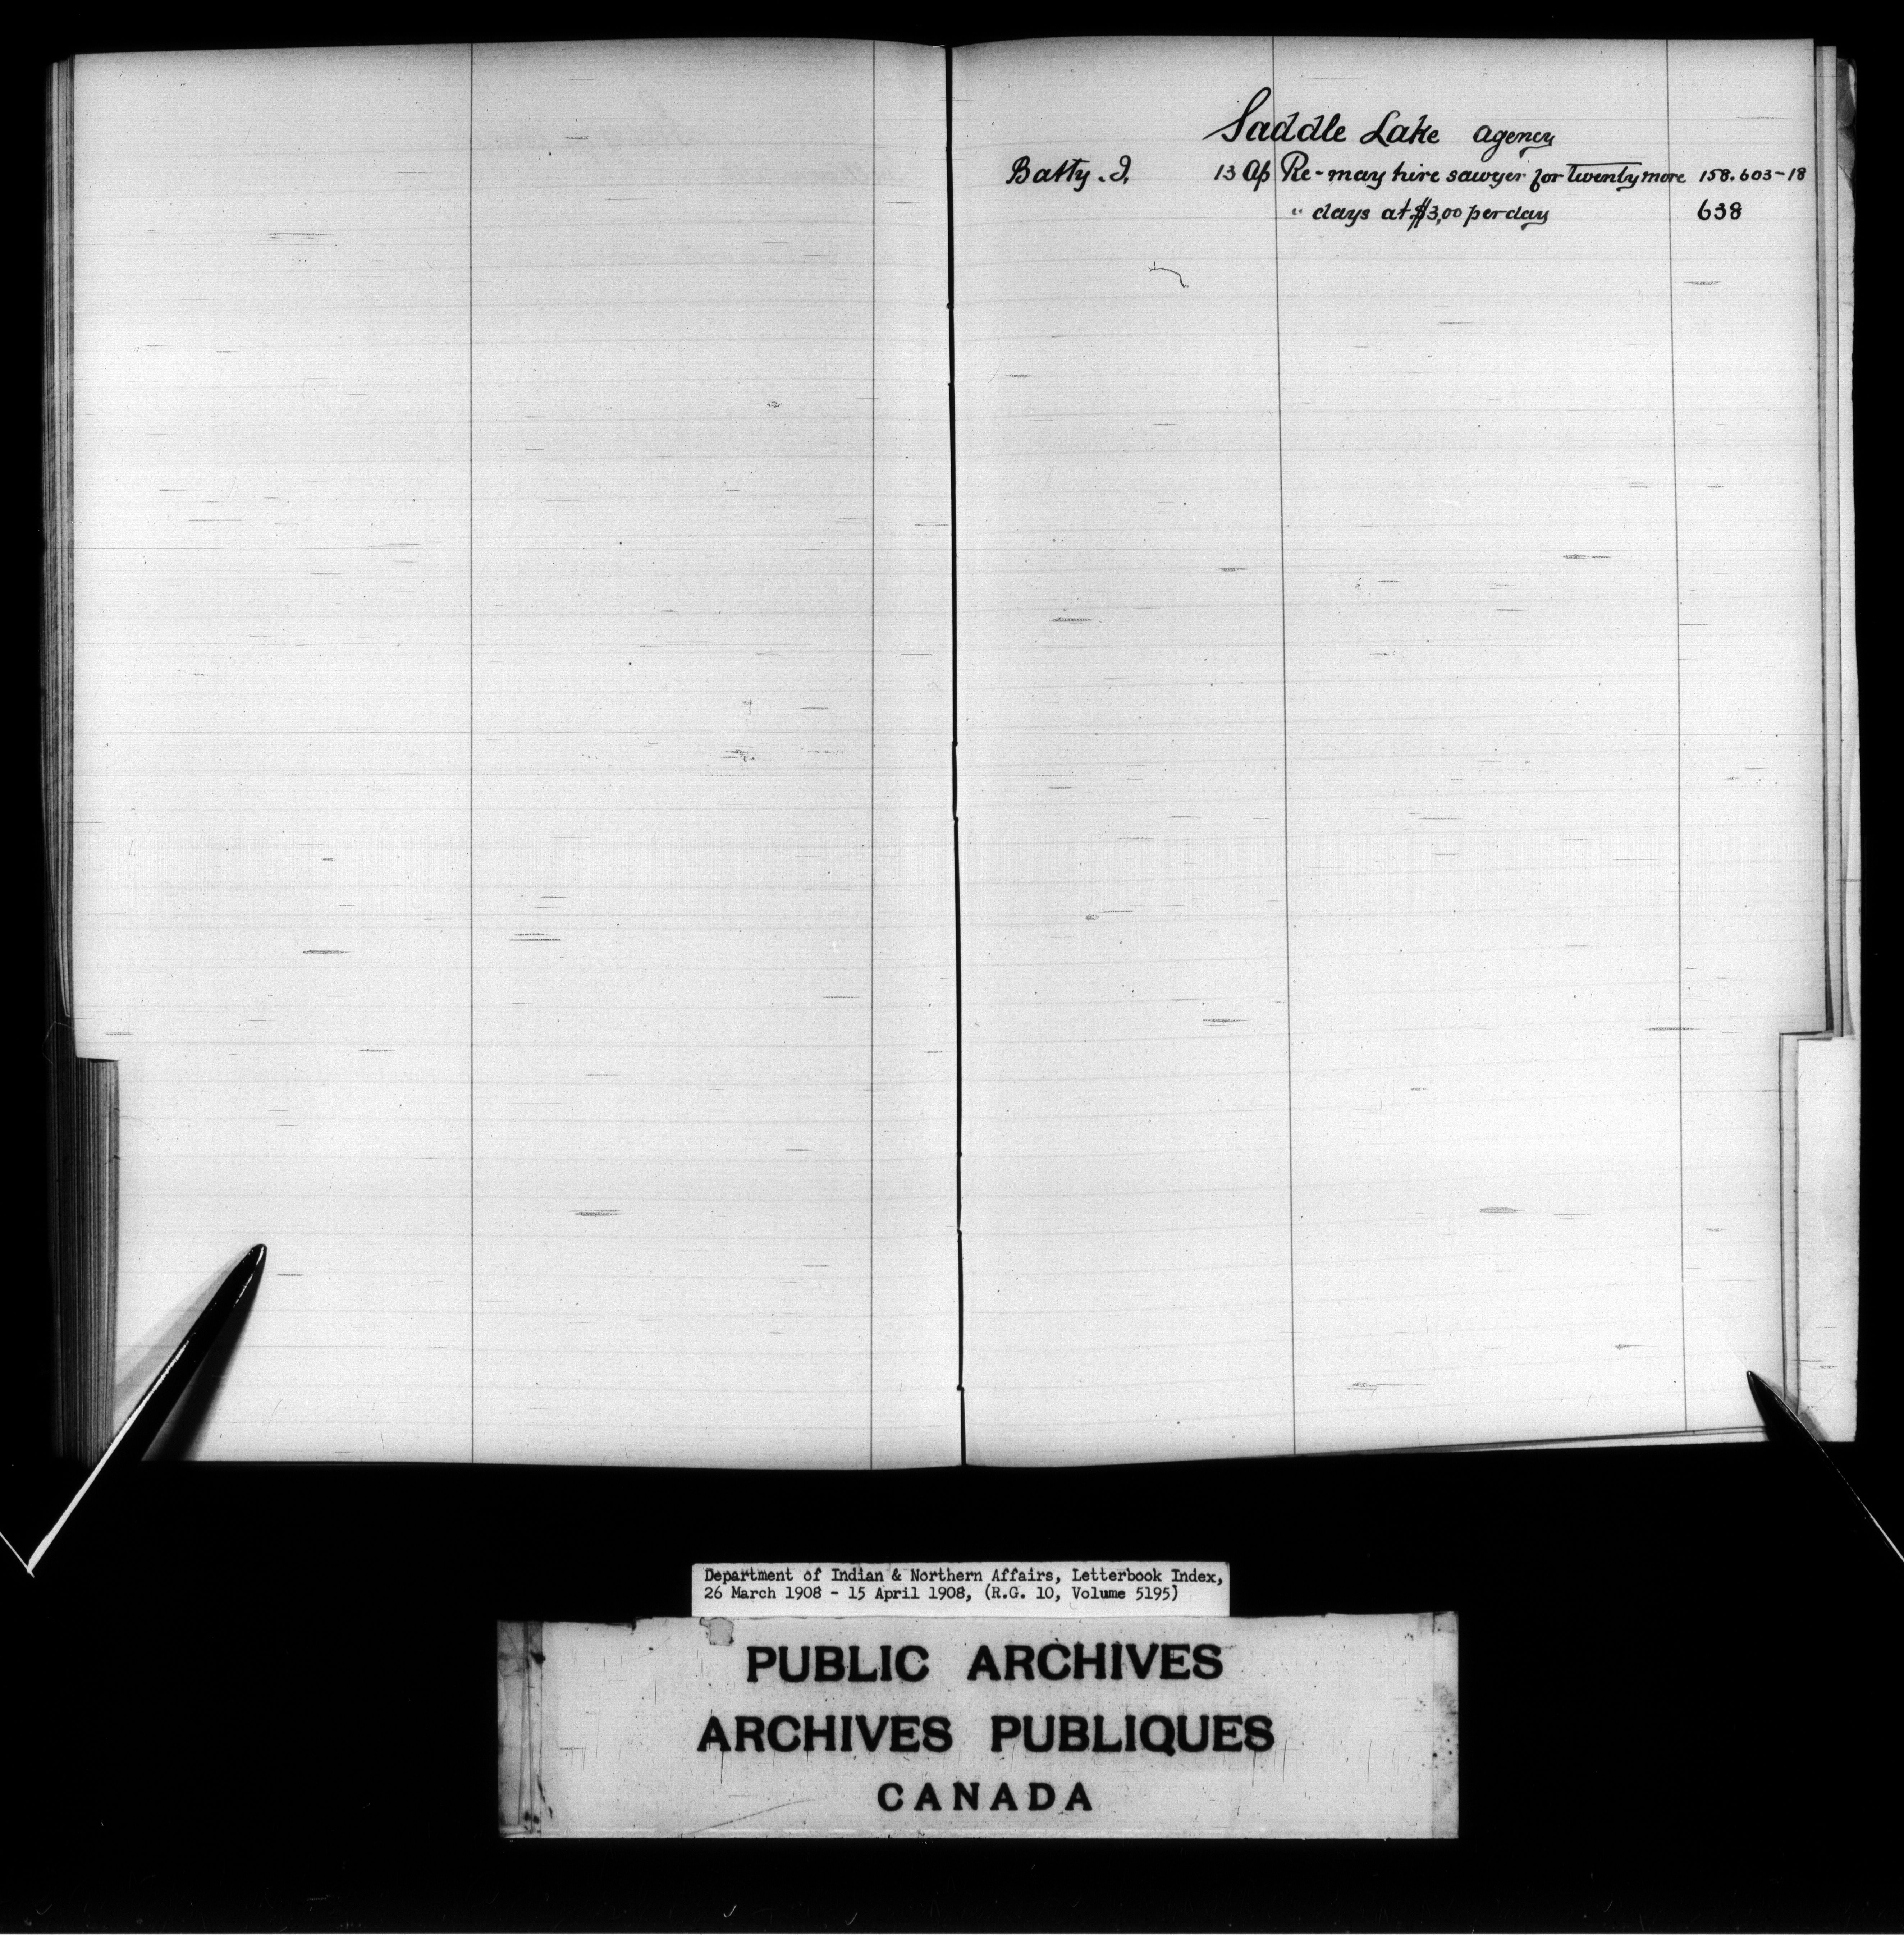 Saddle Lake agency
Batty. J. 13 Ap Re-may hire sawyer for twenty more 158.603-18
" days at $3,00 per day 638
Department of Indian & Northern Affairs, Letterbook Index,
26 March 1908 - 15 April 1908, (R.G. 10, Volume 5195)
PUBLIC ARCHIVES
ARCHIVES PUBLIQUES
CANADA